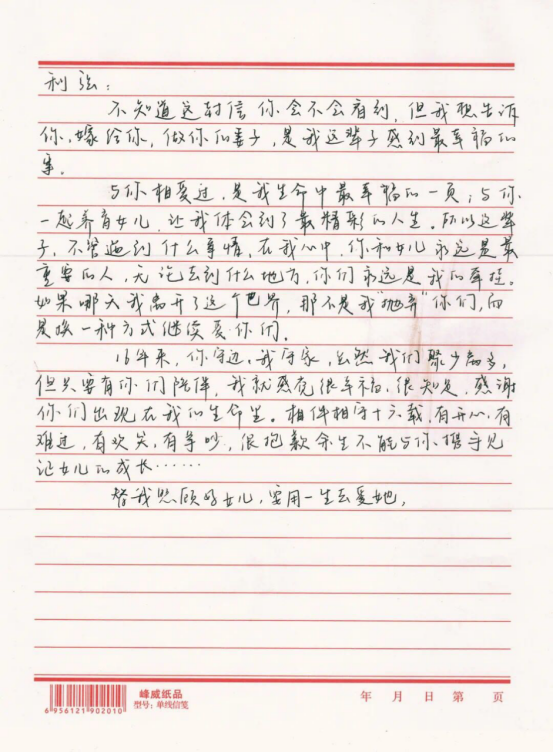 利强：
不知道这封信你会不会看到，但我想告诉
你，嫁给你，做你的妻子，是我这辈子感到最幸福的
事。
与你相爱过，是我生命中最幸福的一页；与你
一起养育女儿，让我体会到了最精彩的人生。所以这辈
子，不管遇到什么事情，在我心中，你和女儿永远是最
重要的人，无论去到什么地方，你们永远是我的牵挂。
如果哪天我离开了这个世界，那不是我“抛弃”你们，而
是换一种方式继续爱你们。
16年来，你守边，我守家，虽然我们聚少离多，
但只要有你们陪伴，我就感觉很幸福、很知足，感谢
你们出现在我的生命里。相伴相守十六载，有开心，有
难过，有欢笑，有争吵，很抱歉余生不能与你携手见
证女儿的成长……
替我照顾好女儿，要用一生去爱她，
6956121902010
峰威纸品
型号：单线信笺
年 月 日 第 页